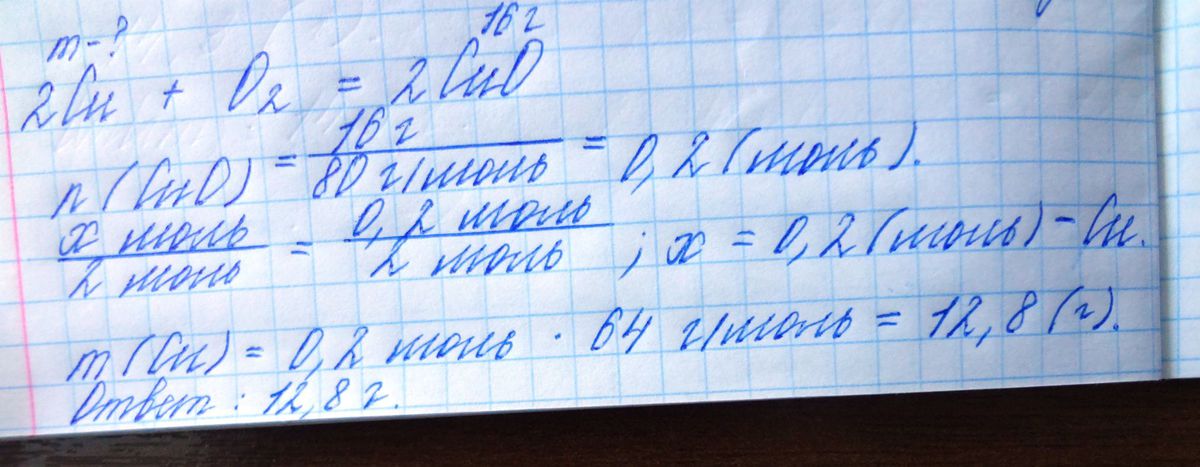 m - ? 16 г
2Cu + O₂ = 2CuO
n(CuO) = 16 г / 80 г/моль = 0,2 (моль).
x моль / 2 моль = 0,2 моль / 2 моль ; x = 0,2 (моль) - Cu.
m(Cu) = 0,2 моль · 64 г/моль = 12,8 (г).
Ответ : 12,8 г.